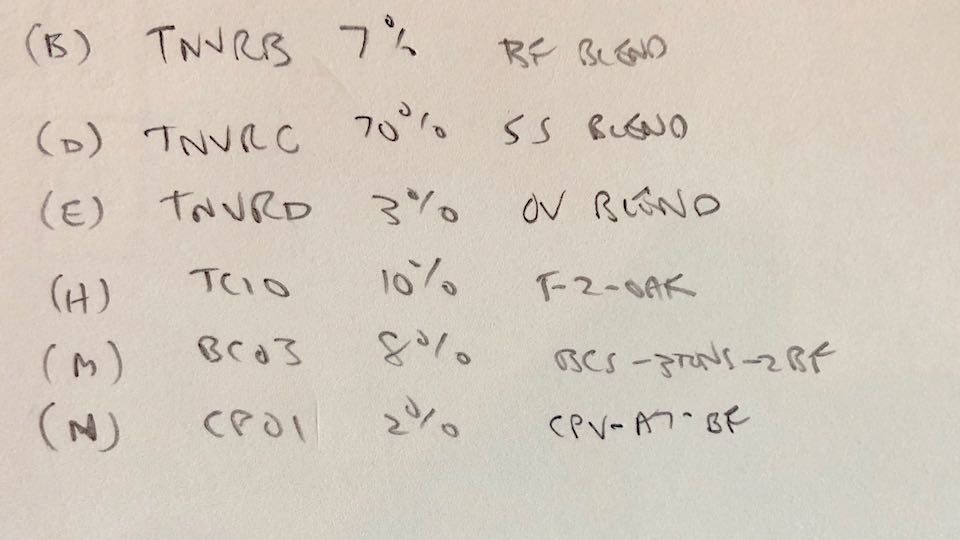 (B) TNVRB 7% BF BLEND
(D) TNVRC 70% SS BLEND
(E) TNVRD 3% OV BLEND
(H) TC10 10% T-2-OAK
(M) BC03 8% BCS-3TONS-2BF
(N) CP01 2% CPV-A7-BF